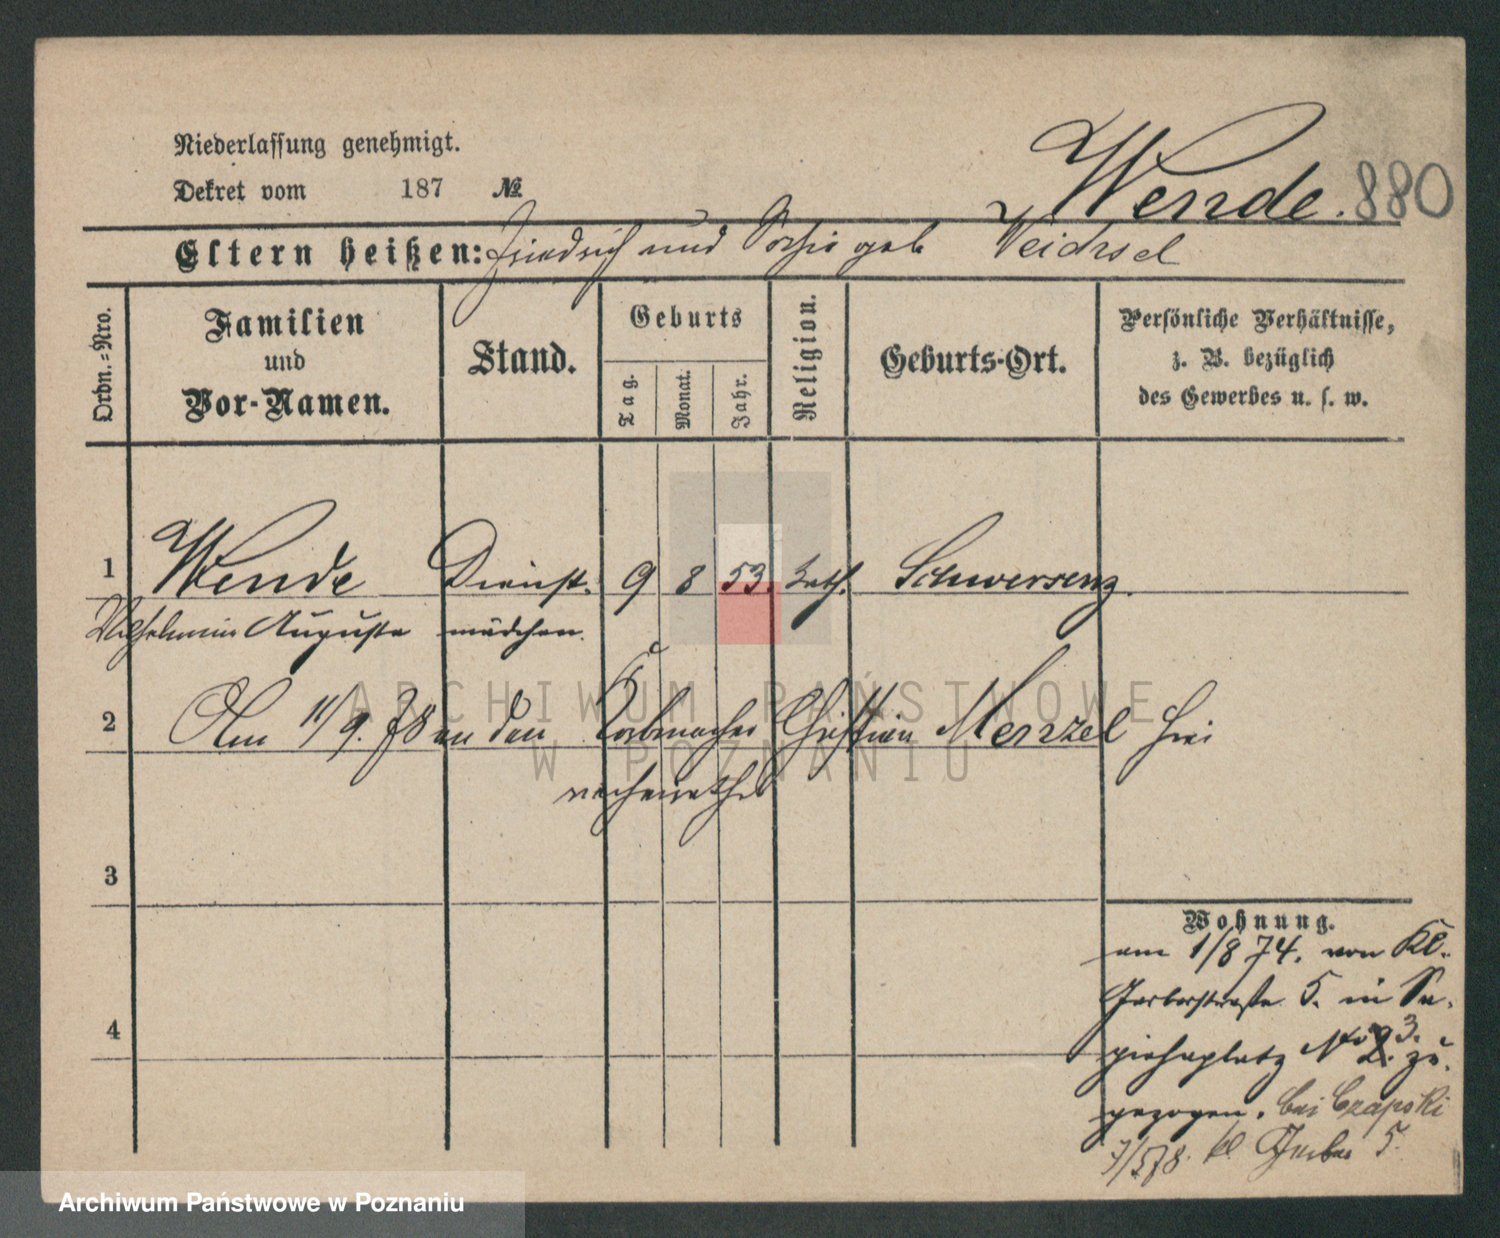 Niederlassung genehmigt.
Dekret vom 187 №
Wende. 880
Eltern heißen: Friedrich und Sophie geb Weichsel
Ordn.-Nro.
Familien
und
Vor-Namen.
Stand.
Geburts
Tag.
Monat.
Jahr.
Religion.
Geburts-Ort.
Persönliche Verhältnisse,
z. B. bezüglich
des Gewerbes u. s. w.
1 Wende Dienst- 9 8 53. kath. Schwersenz.
Wilhelmine Auguste mädchen.
2 Am 11/9. 78 an den Korbmacher Christian Menzel hier
verheirathet
3
4
Wohnung.
am 1/8 74. von Kl.
Gerberstraße 5. in Sa-
piehaplatz No 3. zu-
gezogen. bei Czapski
7/5 78. kl. Gerber 5.
ARCHIWUM PAŃSTWOWE
W POZNANIU
Archiwum Państwowe w Poznaniu